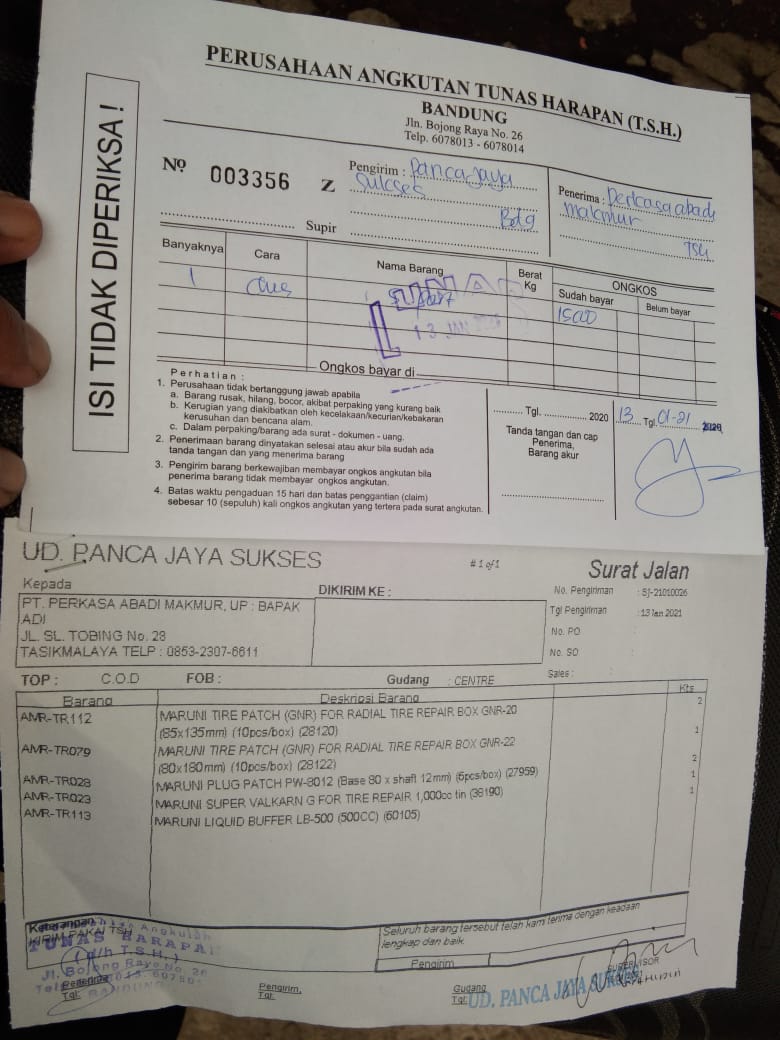 PERUSAHAAN ANGKUTAN TUNAS HARAPAN (T.S.H.)
BANDUNG
Jln. Bojong Raya No. 26
Telp. 6078013 - 6078014
ISI TIDAK DIPERIKSA !
Nº 003356 Z
Pengirim : Panca Jaya
Sukses
Bdg
Penerima : Perkasa abadi
makmur
TSM
Supir
Banyaknya Cara Nama Barang Berat Kg ONGKOS
Sudah bayar Belum bayar
1 S. part 15000
13 JAN
Ongkos bayar di
Perhatian :
1. Perusahaan tidak bertanggung jawab apabila
a. Barang rusak, hilang, bocor, akibat perpaking yang kurang baik
b. Kerugian yang diakibatkan oleh kecelakaan/kecurian/kebakaran
kerusuhan dan bencana alam.
c. Dalam perpaking/barang ada surat - dokumen - uang.
2. Penerimaan barang dinyatakan selesai atau akur bila sudah ada
tanda tangan dan yang menerima barang
3. Pengirim barang berkewajiban membayar ongkos angkutan bila
penerima barang tidak membayar ongkos angkutan.
4. Batas waktu pengaduan 15 hari dan batas penggantian (claim)
sebesar 10 (sepuluh) kali ongkos angkutan yang tertera pada surat angkutan.
Tgl. 2020
Tanda tangan dan cap
Penerima,
Barang akur
13 Tgl. 01-21 2020
UD. PANCA JAYA SUKSES
# 1 of 1
Surat Jalan
Kepada
PT. PERKASA ABADI MAKMUR, UP : BAPAK
ADI
JL. SL. TOBING No. 28
TASIKMALAYA TELP : 0853-2307-6611
DIKIRIM KE :
No. Pengiriman : SJ-21010026
Tgl Pengiriman : 13 Jan 2021
No. PO :
No. SO :
Sales :
TOP : C.O.D FOB : Gudang : CENTRE
Barang Deskripsi Barang Kts
AMR-TR112 MARUNI TIRE PATCH (GNR) FOR RADIAL TIRE REPAIR BOX GNR-20 2
(85x135mm) (10pcs/box) (28120)
AMR-TR079 MARUNI TIRE PATCH (GNR) FOR RADIAL TIRE REPAIR BOX GNR-22 1
(80x180mm) (10pcs/box) (28122)
AMR-TR028 MARUNI PLUG PATCH PW-8012 (Base 80 x shaft 12mm) (5pcs/box) (27959) 2
AMR-TR023 MARUNI SUPER VALKARN G FOR TIRE REPAIR 1,000cc tin (38190) 1
AMR-TR113 MARUNI LIQUID BUFFER LB-500 (500CC) (60105) 1
Keterangan
KIRIM PAKAI TSH
Angkutan
TUNAS HARAPAN
(d/h T.S.H.)
Jl. Bojong Raya No. 26
BANDUNG
Seluruh barang tersebut telah kami terima dengan keadaan
lengkap dan baik.
Pengirim
Penerima
Tgl:
Pengirim,
Tgl:
Gudang
Tgl:
SUPERVISOR
UD. PANCA JAYA SUKSES